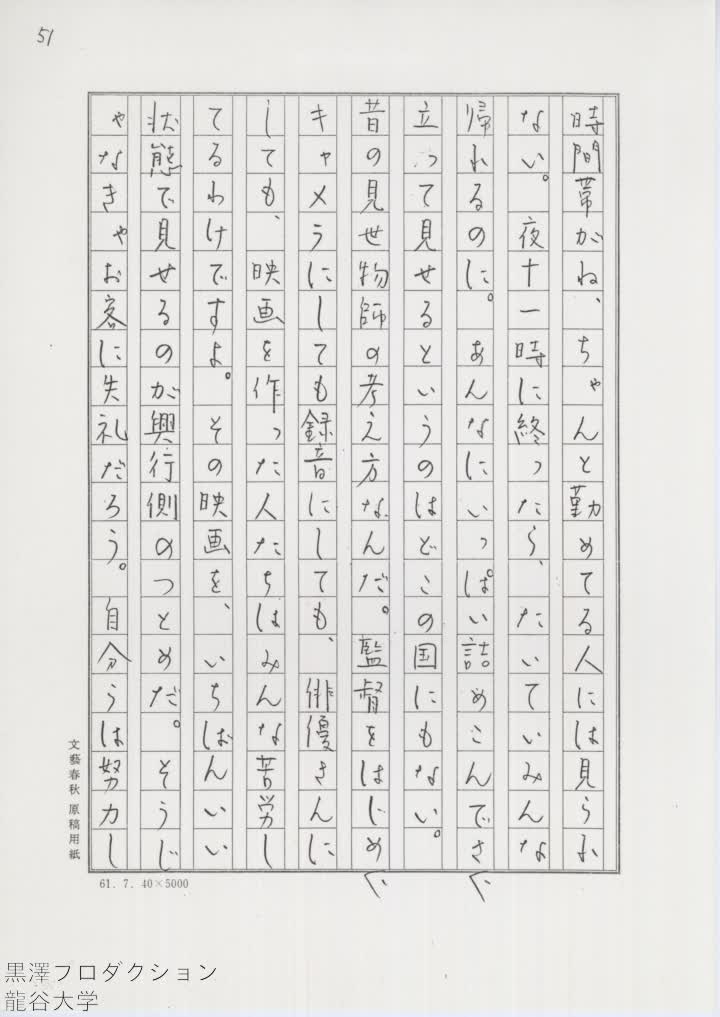 51
時間帯がね、ちゃんと勤めてる人には見られ
ない。夜十一時に終ったら、たいていみんな
帰れるのに。あんなにいっぱい詰めこんでさ、
立って見せるというのはどこの国にもない。
昔の見世物師の考え方なんだ。監督をはじめ、
キャメラにしても録音にしても、俳優さんに
しても、映画を作った人たちはみんな苦労し
てるわけですよ。その映画を、いちばんいい
状態で見せるのが興行側のつとめだ。そうじ
ゃなきゃお客に失礼だろう。自分らは努力し
文藝春秋 原稿用紙
61. 7. 40×5000
黒澤プロダクション
龍谷大学